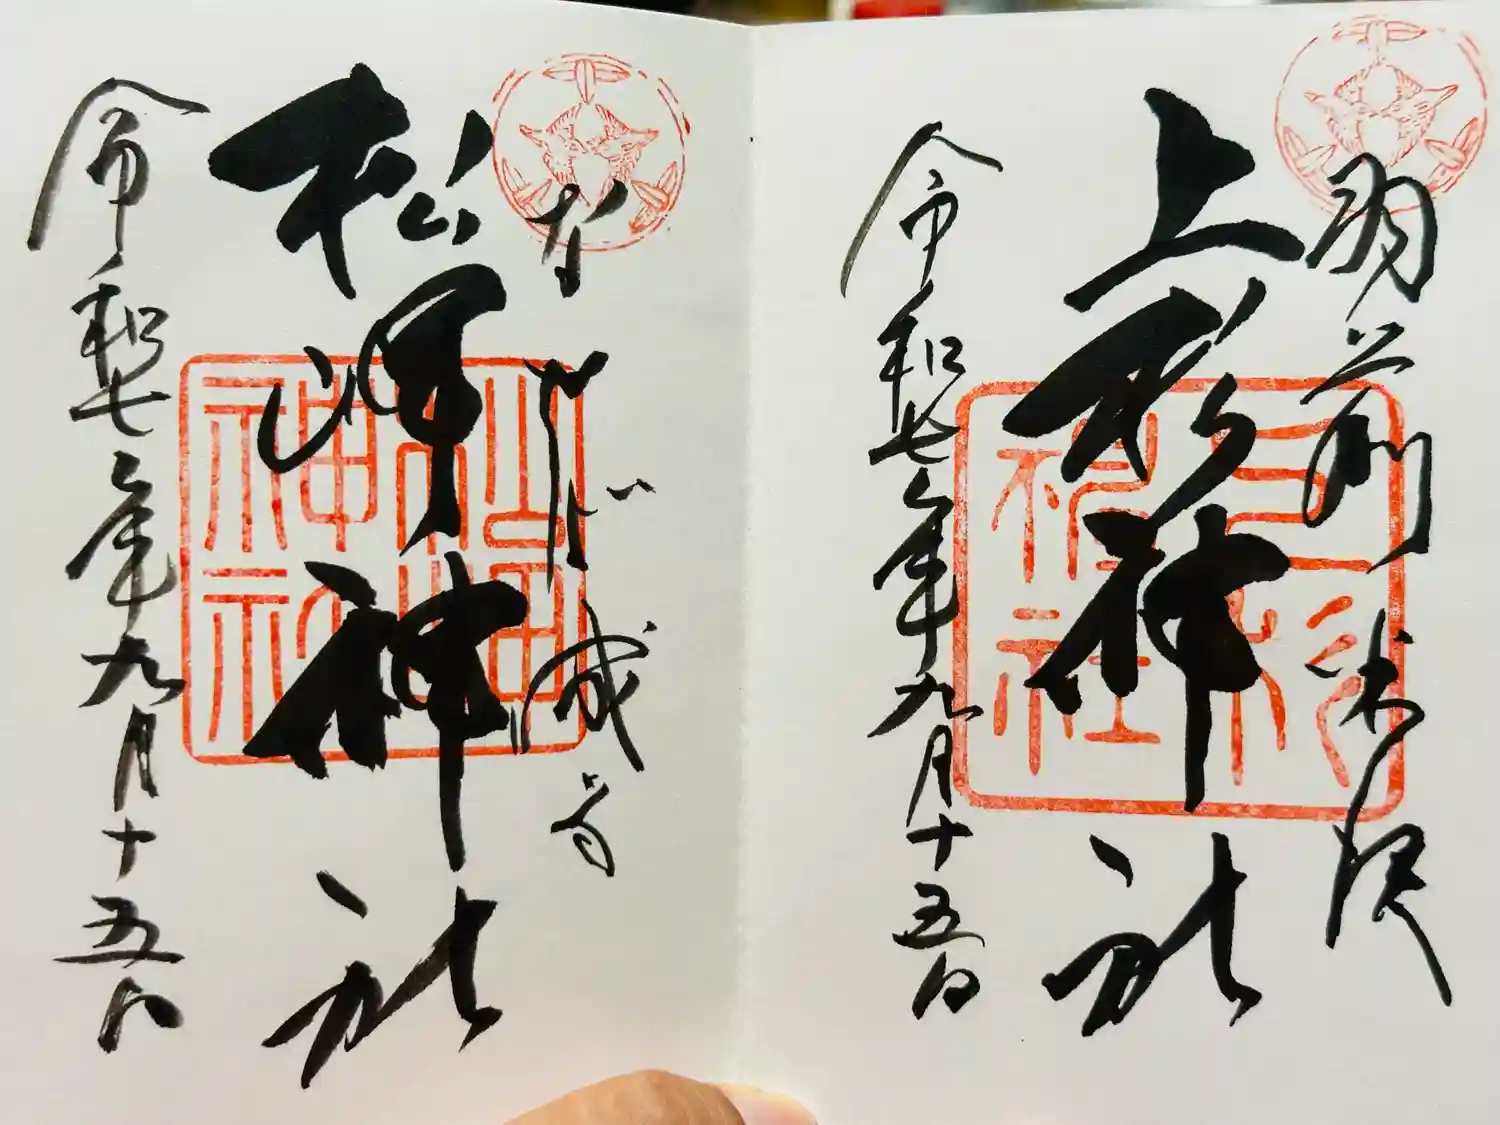 羽前米沢
上杉神社
令和七年九月十五日
上杉
神社
なせば成る
松岬神社
令和七年九月十五日